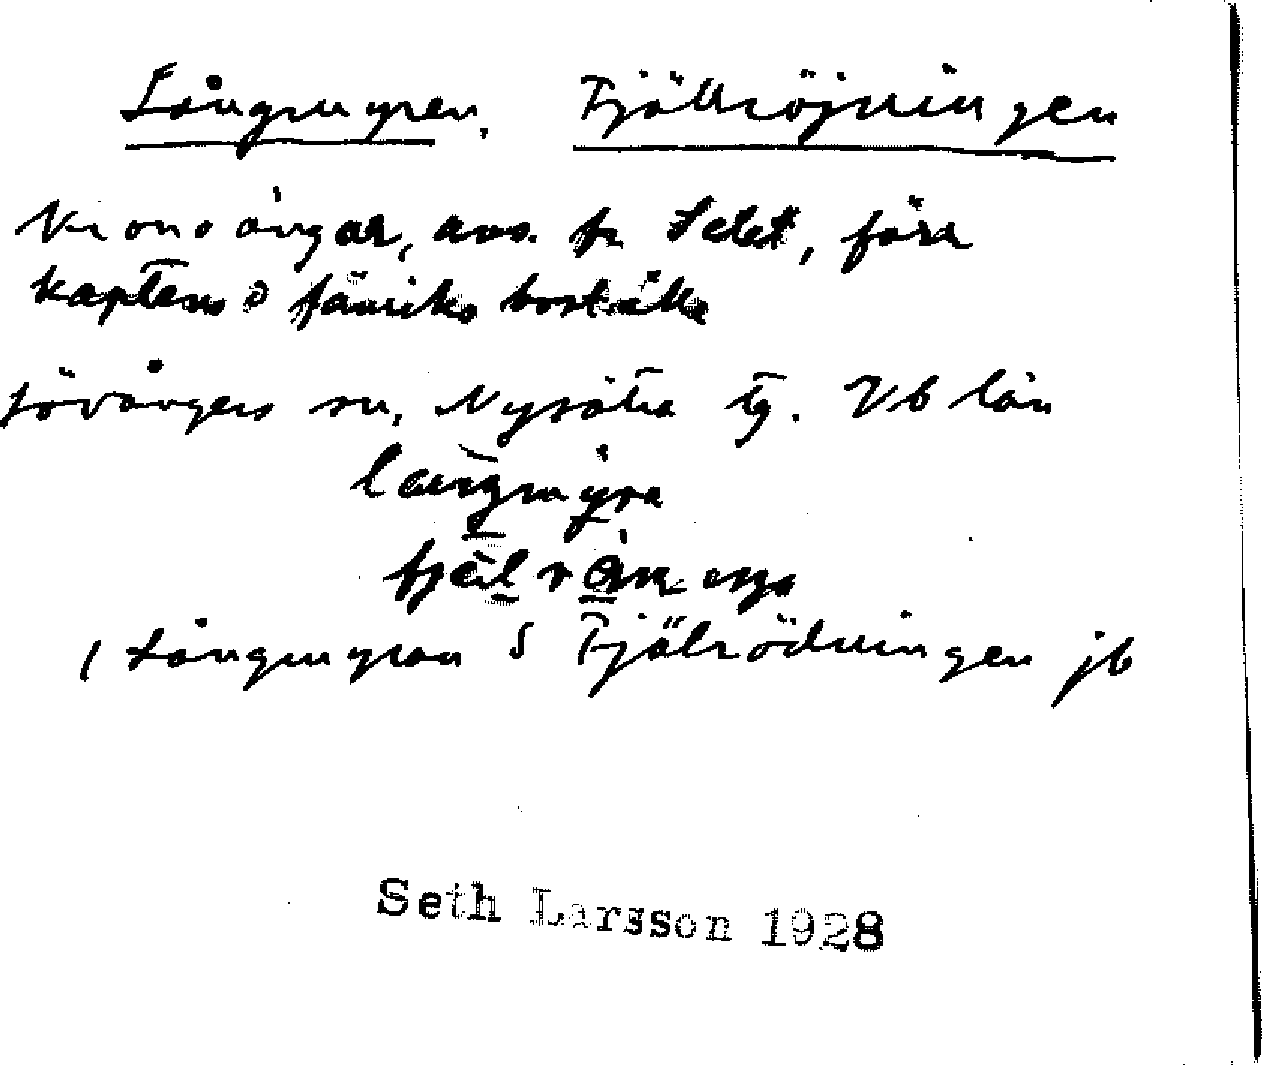 Långmyren, Fjälröjningen
Kronoängar, avs. fr Selet, förr
kaptens o fänriks boställe
Lövångers sn, Nysätra tg. Vb län
langmyra
(Långmyran o Fjälrödningen jb
Seth Larsson 1928